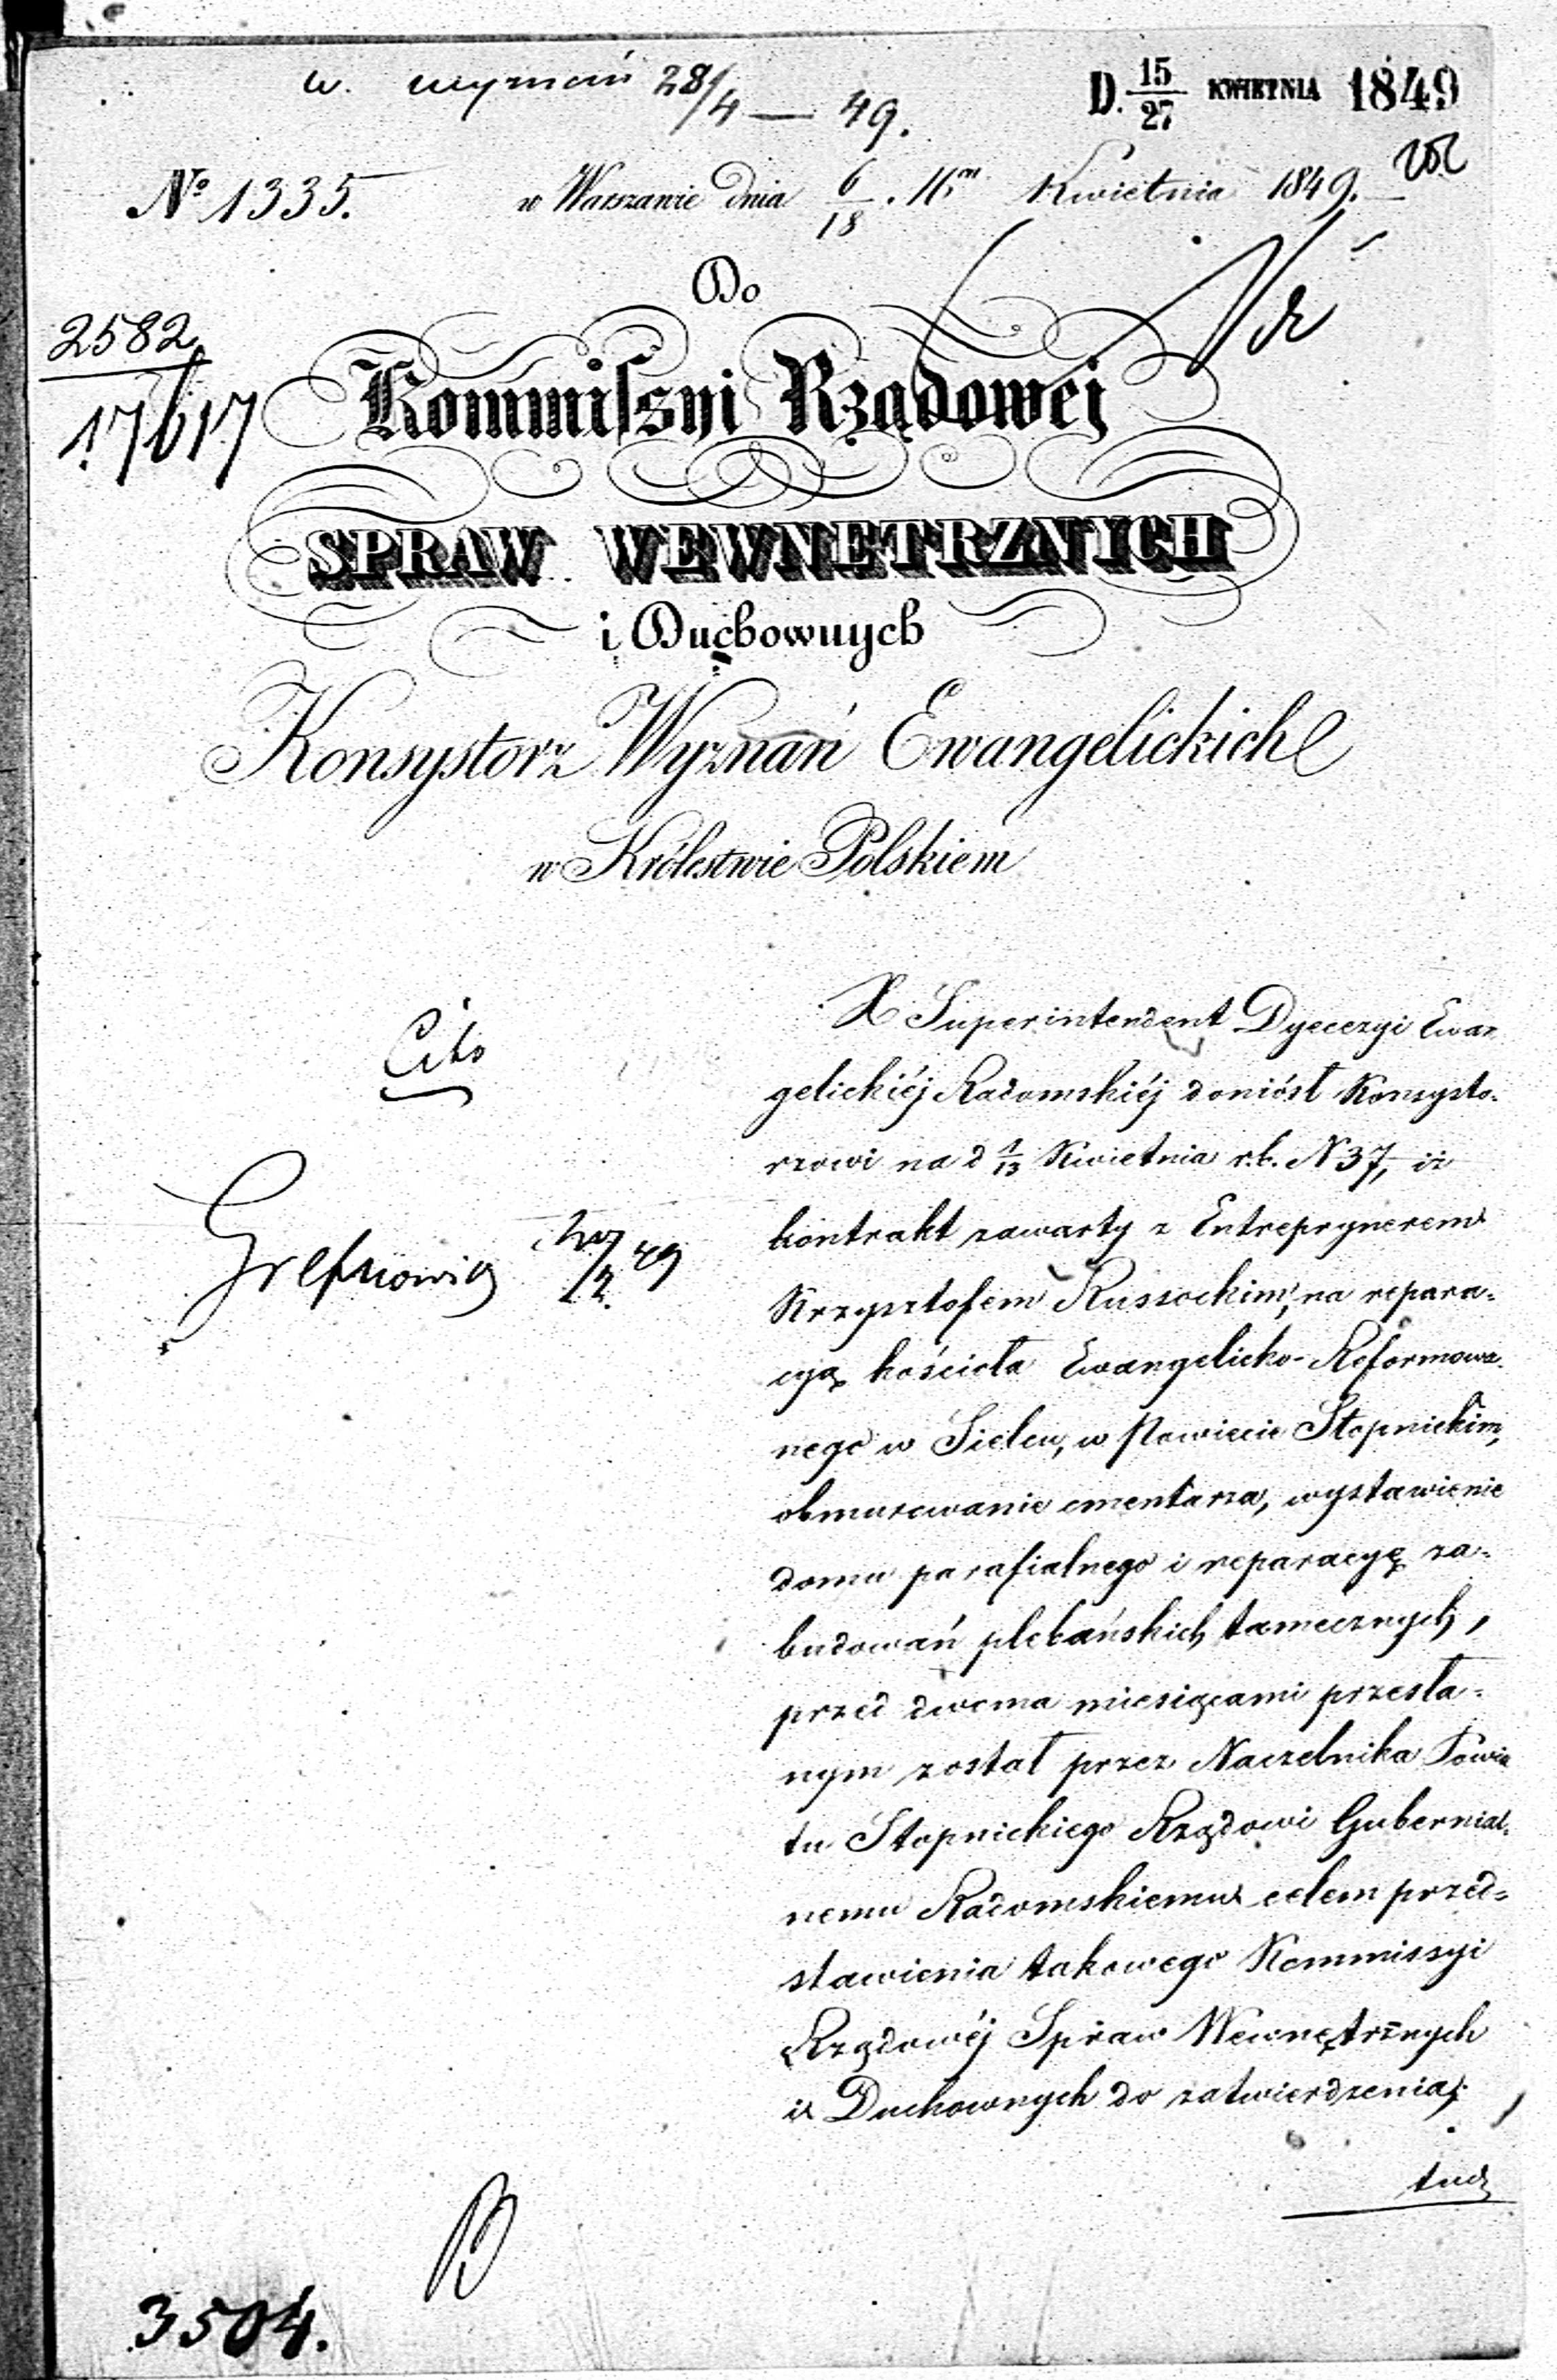 w. wyznań 28/4 — 49.
D. 15/27 KWIETNIA 1849
№ 1335.
w Warszawie dnia 6/18. Kwietnia 1849.
Do
2582
17617
Kommissyi Rządowej
SPRAW WEWNETRZNYCH
i Duchownych
Konsystorz Wyznań Ewangelickich
w Królestwie Polskiem
Cito
X Superintendent Dyecezyi Ewan
gelickiéj Radomskiéj doniósł Konsysto-
rzowi na d 1/13 Kwietnia r.b. N 37, iż
kontrakt zawarty z Entreprynerem
Krzysztofem Russockim, na repara-
cyą kościoła Ewangelicko-Reformowa-
nego w Sielcu, w Powiecie Stopnickim,
obmurowanie cmentarza, wystawienie
domu parafialnego i reparacyę za-
budowań plebańskich tamecznych,
przed dwoma miesiącami przesła-
nym został przez Naczelnika Powia
tu Stopnickiego Rządowi Gubernial-
nemu Radomskiemu celem przed-
stawienia takowego Kommissyi
Rządowéj Spraw Wewnętrznych
i Duchownych do zatwierdzenia;
tudz
3504.